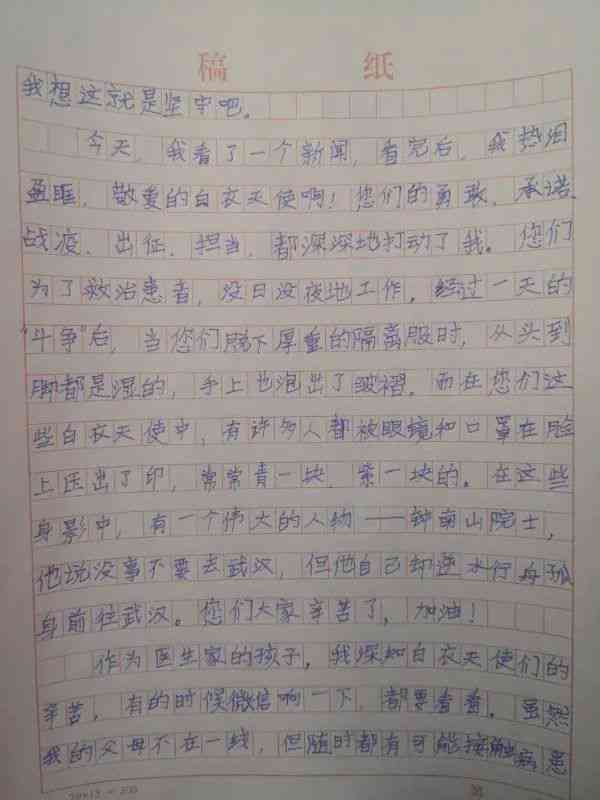 稿 纸
我想这就是坚守吧。
今天，我看了一个新闻，看完后，我热泪
盈眶，敬重的白衣天使啊！您们的勇敢、承诺、
战疫、出征、担当，都深深地打动了我。您们
为了救治患者，没日没夜地工作。经过一天的
“斗争”后，当您们脱下厚重的隔离服时，从头到
脚都是湿的，手上也泡出了皱褶。而在您们这
些白衣天使中，有许多人都被眼镜和口罩在脸
上压出了印，常常青一块，紫一块的。在这些
身影中，有一个伟大的人物——钟南山院士，
他说没事不要去武汉，但他自己却逆水行舟孤
身前往武汉。您们大家辛苦了，加油！
作为医生家的孩子，我深知白衣天使们的
辛苦，有的时候微信响一下，都要看看。虽然
我的父母不在一线，但随时都有可能接触病患